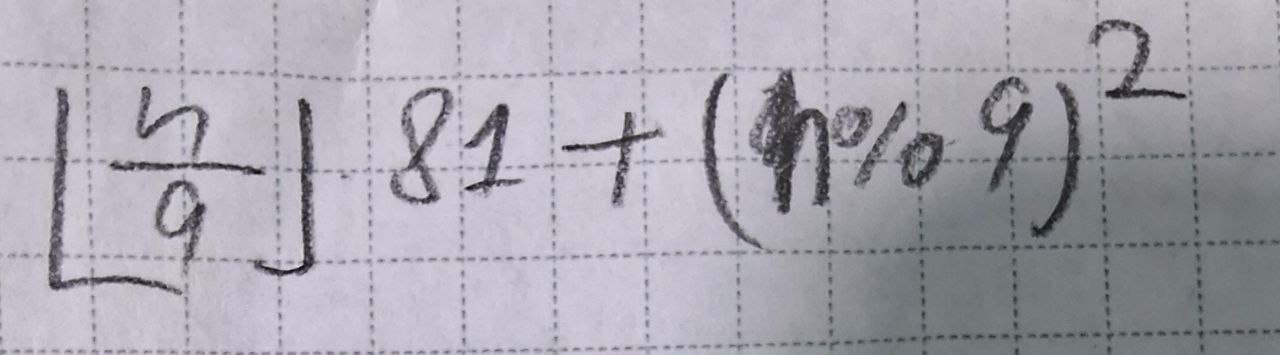 ⌊n/9⌋ · 81 + (n % 9)²